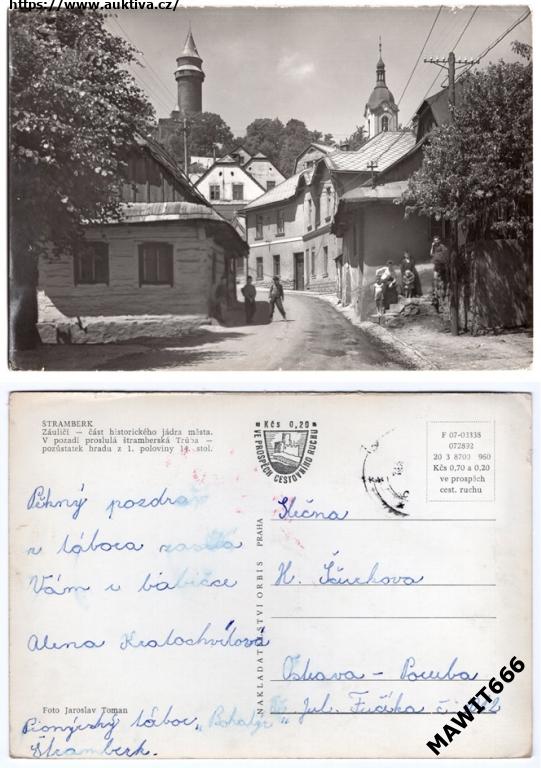 https://www.auktiva.cz/
ŠTRAMBERK
Záuličí — část historického jádra města.
V pozadí proslulá štramberská Trúba —
pozůstatek hradu z 1. poloviny 14. stol.
Kčs 0,20
VE PROSPĚCH CESTOVNÍHO RUCHU
F 07-03338
072892
20 3 8703 960
Kčs 0,70 a 0,20
ve prospěch
cest. ruchu
Pěkný pozdrav
z tábora zasílá
Vám i babičce
Alena Kratochvílová
Pionýrský tábor
Štramberk.
Foto Jaroslav Toman
NAKLADATELSTVÍ ORBIS PRAHA
Slečna
H.
Ostrava – Poruba
Jul. Fučíka
MAWITT666